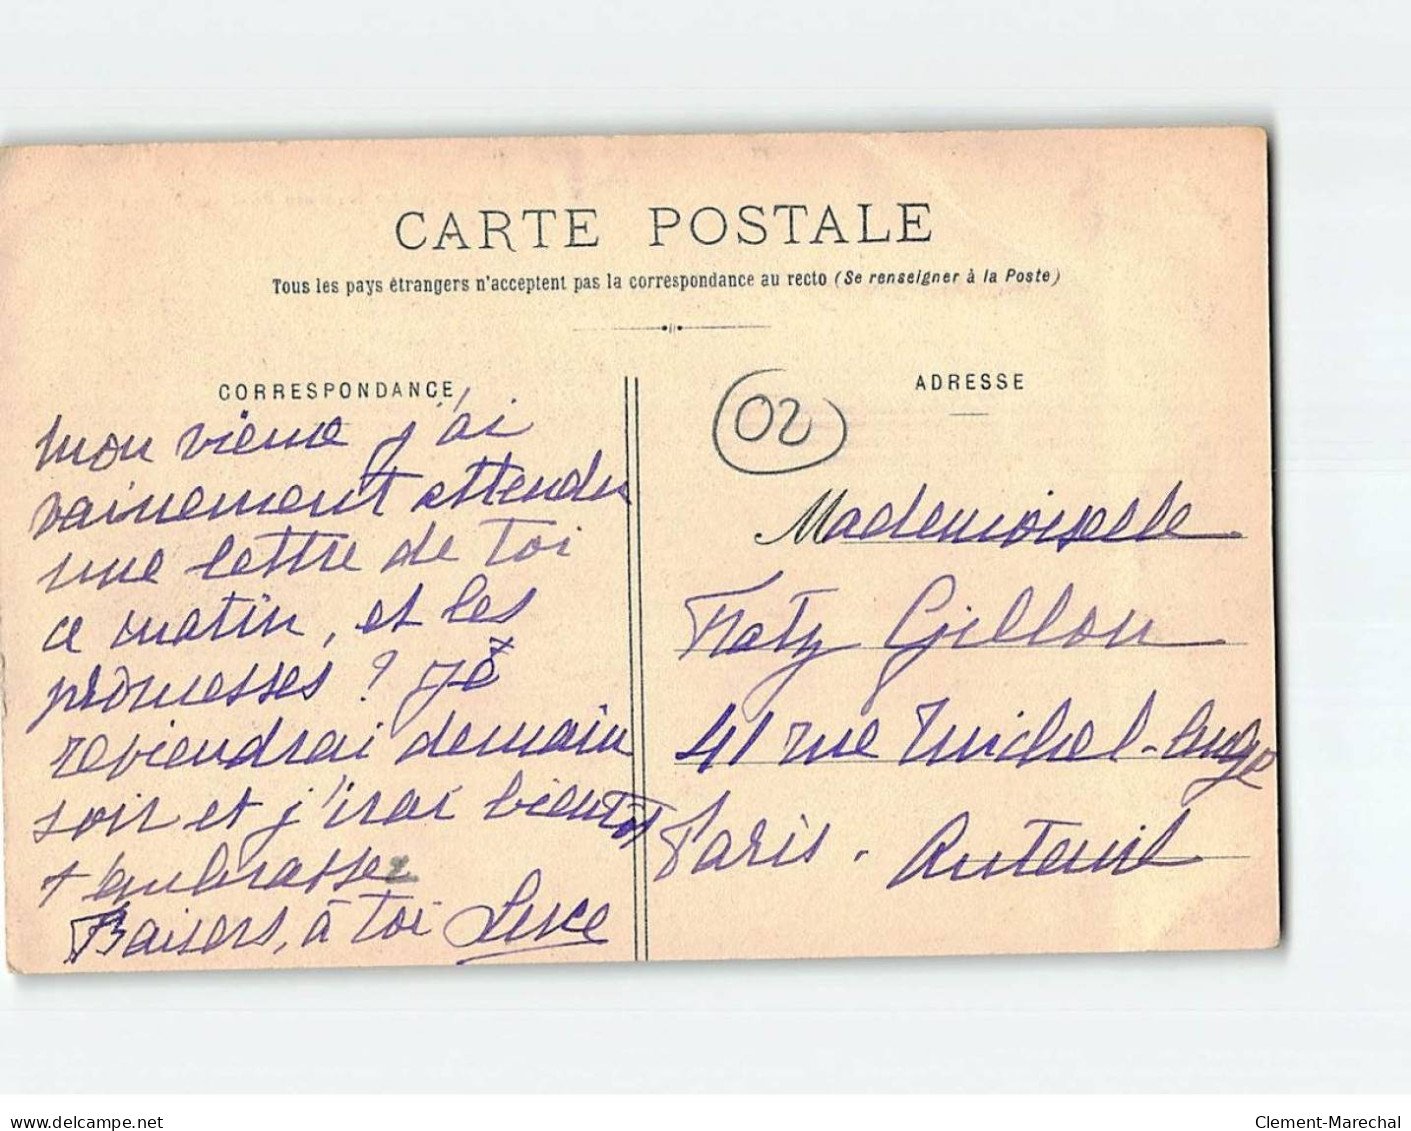 CARTE POSTALE
Tous les pays étrangers n'acceptent pas la correspondance au recto (Se renseigner à la Poste)
CORRESPONDANCE
ADRESSE
02
mon j'ai
vainement attendu
une lettre de toi
ce matin, et les
promesses ? Je
reviendrai demain
soir et j'irai bientôt
t'embrasser
Baisers, à toi Luce
Mademoiselle
Katy Gillon
41 rue Michel-Ange
Paris. Auteuil
www.delcampe.net
Clement-Marechal